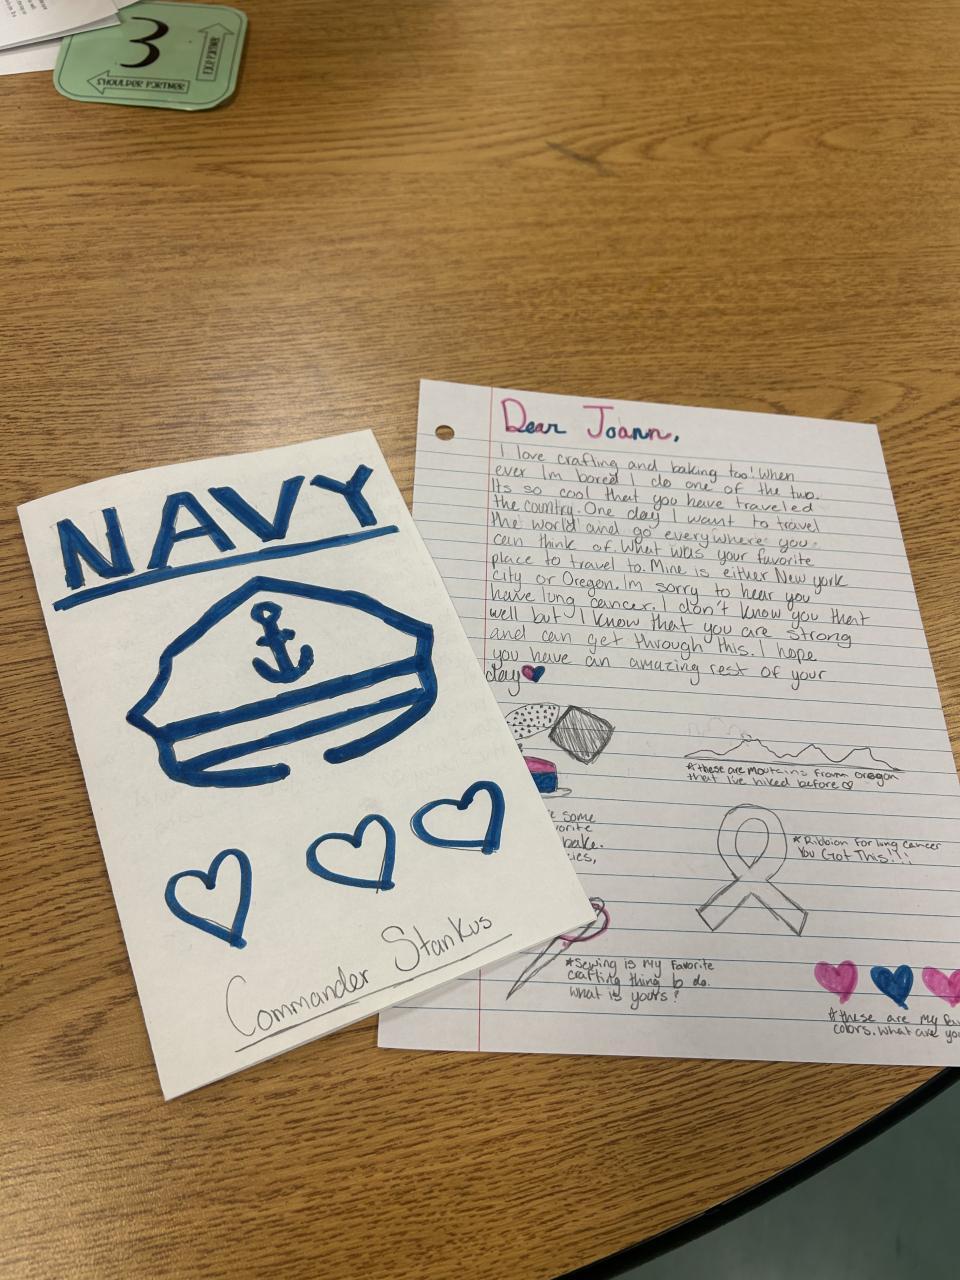 3
SHOULDER PARTNER
FACE PARTNER
NAVY
Commander Stankus
Dear Joann,
I love crafting and baking too! When
ever Im bored I do one of the two.
Its so cool that you have traveled
the country. One day I want to travel
the world and go everywhere you
can think of. What was your favorite
place to travel to. Mine is either New york
city or Oregon. Im sorry to hear you
have lung cancer. I don't know you that
well but I know that you are strong
and can get through this. I hope
you have an amazing rest of your
day
*these are moutains from oregon
that I've hiked before
some
bake.
*Ribbion for lung cancer
You Got This!!!
*Sewing is my favorite
crafting thing to do.
What is yours?
*these are my fav
colors. What are you